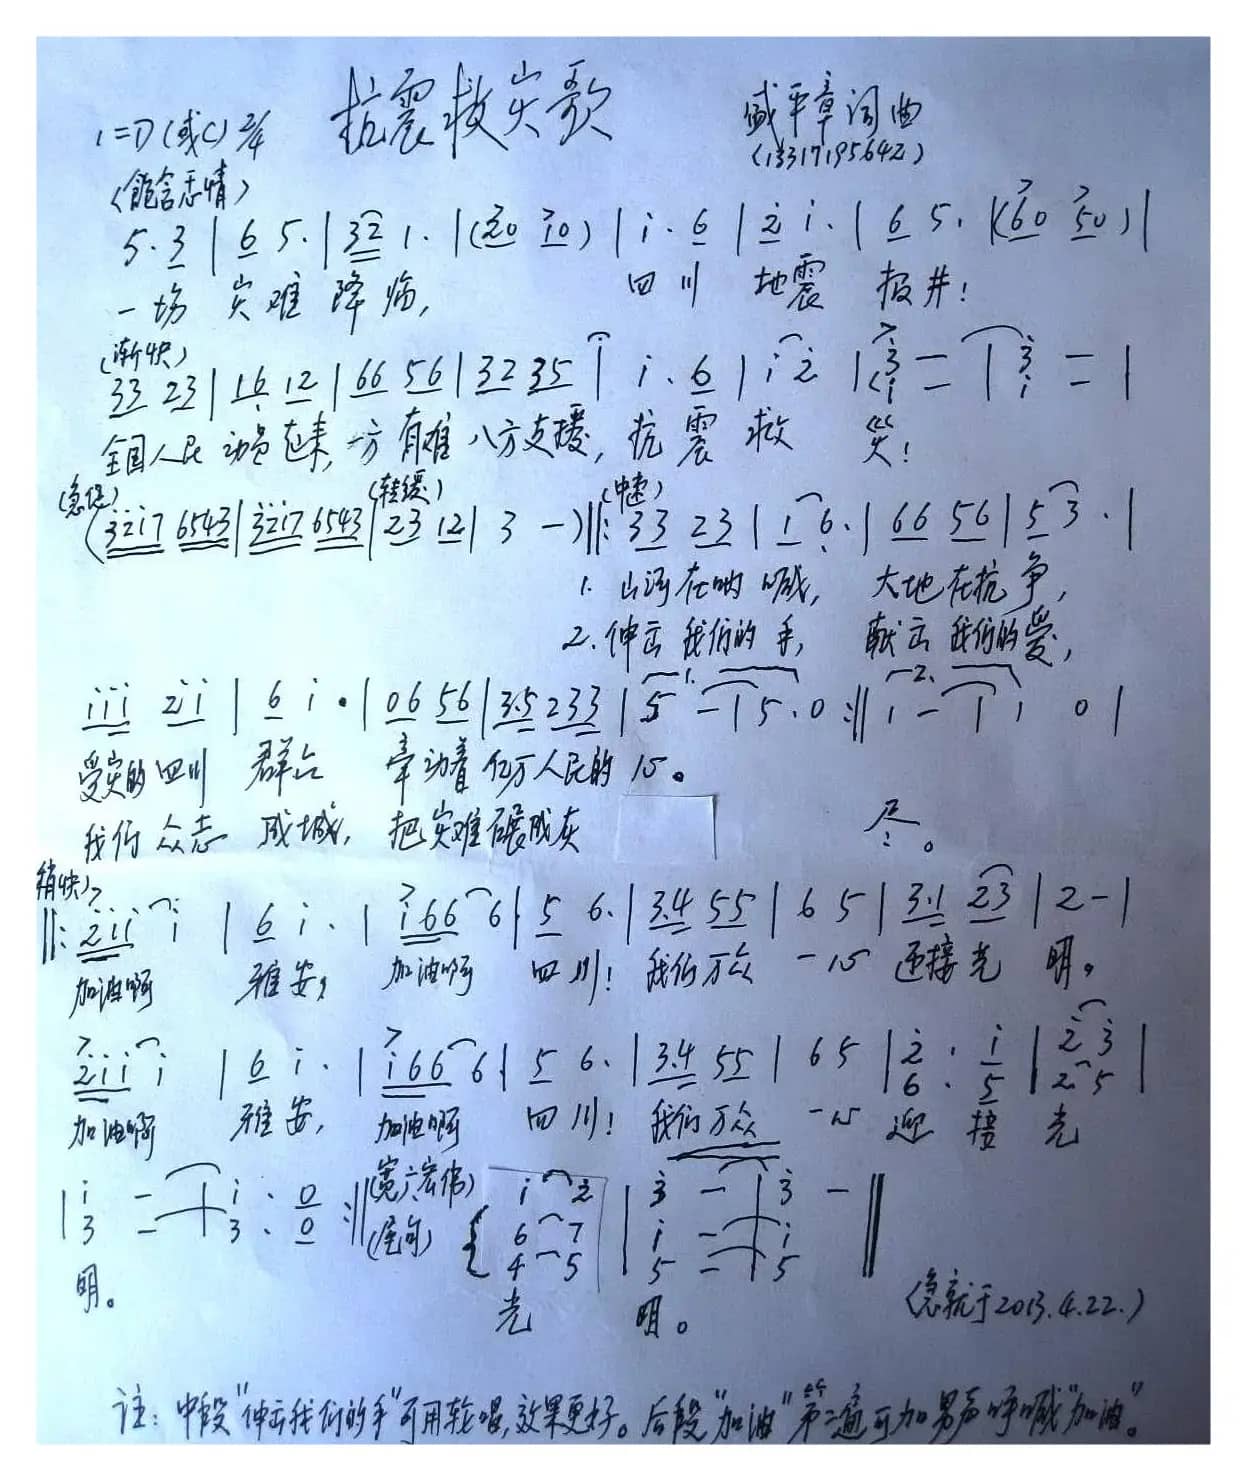 抗震救灾歌
1=D(或C) 2/4
盛平章词曲
(13317195642)
(饱含悲情)
5. 3 | 6 5. | 32 1. | (20 10) | i. 6 | 2 i. | 6 5. | (60 50) |
一场 灾难 降临, 四川 地震 报井!
(渐快)
33 23 | 16 12 | 66 56 | 32 35 | i. 6 | i 2 | 3 - | 3 - |
i - | i - |
全国人民 动员起来, 一方有难 八方支援, 抗震救灾!
(急促) (转缓) (中速)
(3217 6543 | 3217 6543 | 23 12 | 3 -) ‖: 33 23 | 1 6. | 66 56 | 5 3. |
1. 山河在呐喊, 大地在抗争,
2. 伸出我们的手, 献出我们的爱,
1. 2.
iii 2i | 6 i. | 06 56 | 3.5 233 | 5 - | 5. 0 :‖ i - | i 0 |
受灾的四川 群众 牵动着亿万人民的心。
我们众志 成城, 把灾难碾成灰 尽。
(稍快)
‖: 2ii i | 6 i. | i66 6 | 5 6. | 3.4 55 | 6 5 | 3.1 23 | 2 - |
加油啊 雅安, 加油啊 四川! 我们万众 一心 迎接光 明。
2ii i | 6 i. | i66 6 | 5 6. | 3.4 55 | 6 5 | 2. i | 2 3 |
6. 5 | 2 5
加油啊 雅安, 加油啊 四川! 我们万众 一心 迎接光
| i - | i. 0 :‖ (宽广宏伟) i 2 | 3 - | 3 - ‖
3 - | 3. 0 (尾句) 6 7 | i - | i
4 5 | 5 - | 5
明。 光 明。
(急就于2013.4.22.)
注: 中段"伸出我们的手"可用轮唱,效果更好。后段"加油"第二遍可加男声呼喊"加油"。